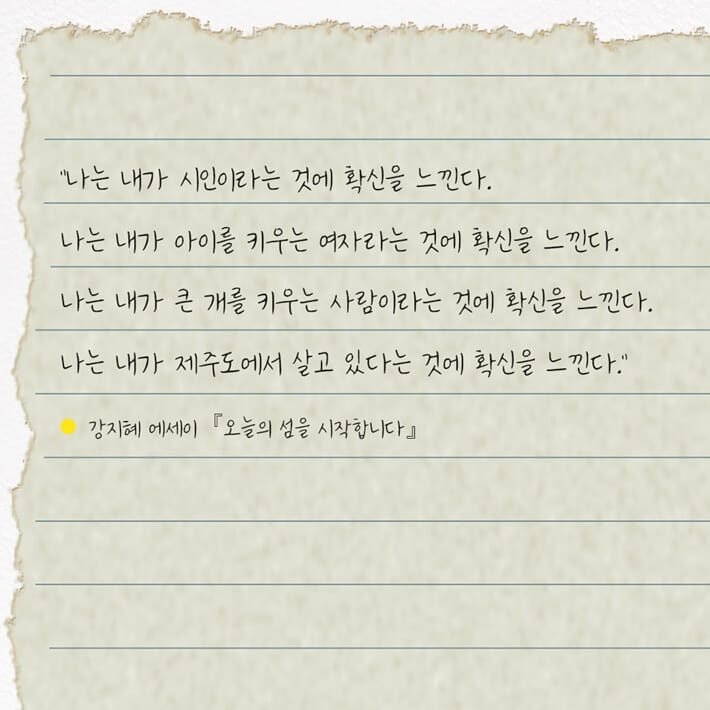 "나는 내가 시인이라는 것에 확신을 느낀다.
나는 내가 아이를 키우는 여자라는 것에 확신을 느낀다.
나는 내가 큰 개를 키우는 사람이라는 것에 확신을 느낀다.
나는 내가 제주도에서 살고 있다는 것에 확신을 느낀다."
강지혜 에세이 『오늘의 섬을 시작합니다』